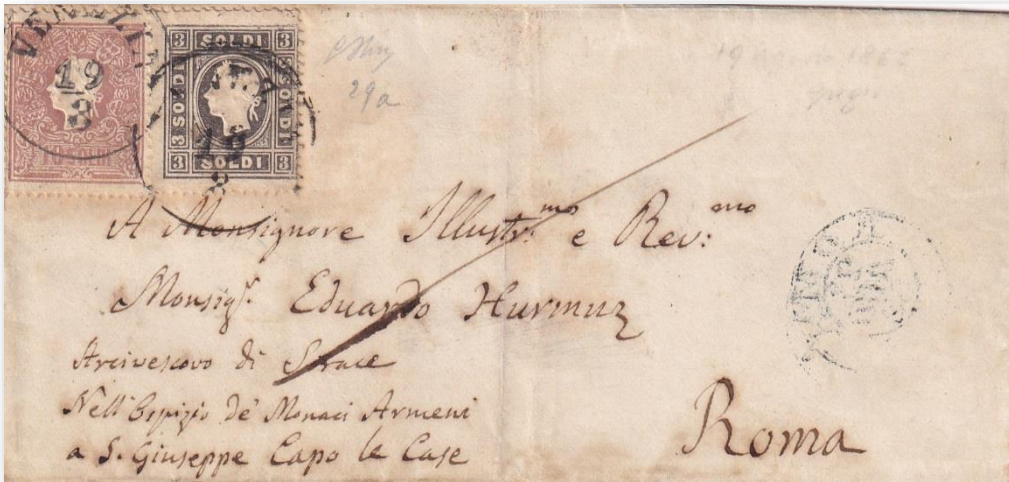 VENEZIA
19
3
3 SOLDI 3
SOLDI
SOLDI
3 SOLDI 3
19
29a
A Monsignore Illustr.mo e Rev:mo
Monsig.r Eduardo Hurmuz
Arcivescovo di Sirace
Nell'Ospizio de' Monaci Armeni
a S. Giuseppe Capo le Case
Roma